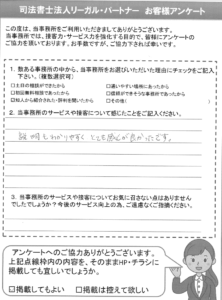 司法書士法人リーガル・パートナー お客様アンケート
この度は、当事務所をご利用いただきましてありがとうございます。
当事務所では、接客力・サービス力を強化する目的で、皆様にアンケートの
ご協力を頂いております。お手数ですが、ご協力下されば幸いです。
1. 数ある事務所の中から、当事務所をお選びいただいた理由にチェックをご記入
下さい。(複数選択可)
□土日の相談ができたから
□通いやすい場所にあったから
□初回無料相談であったから
□信頼ができそうな事務所であったから
□知人から紹介された・評判を聞いたから
□その他( )
2. 当事務所のサービスや接客について感じたことをご記入ください。
説明もわかりやすく とても感じが良かったです。
3. 当事務所のサービスや接客についてお気に召さない点はありません
でしたでしょうか?今後のサービス向上の為、ご遠慮なくご指摘ください。
アンケートへのご協力ありがとうございます。
上記点線枠内の内容を、そのままHP・チラシに
掲載しても宜しいでしょうか。
□掲載してもよい □掲載は控えて欲しい